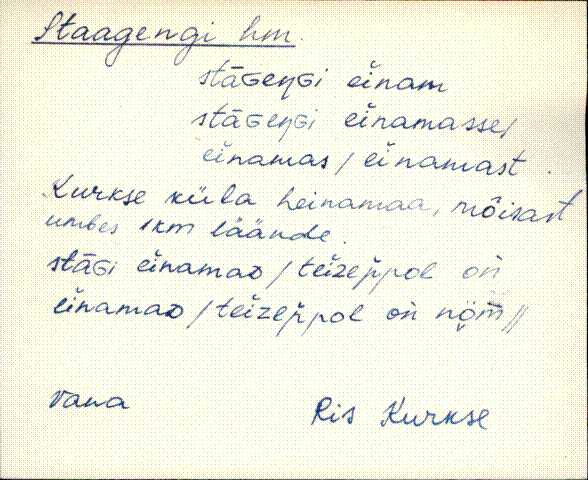 Staagengi hm.
stāGeŋGi eĭnam
stāGeŋGi eĭnamasse/
eĭnamas / eĭnamast
Kurkse küla heinamaa, mõisast
umbes 1 km läände.
stāGi eĭnamaD / teĭzep̆pol oń
eĭnamaD / teĭzep̆pol oń nȭm̄ //
vana
Ris Kurkse